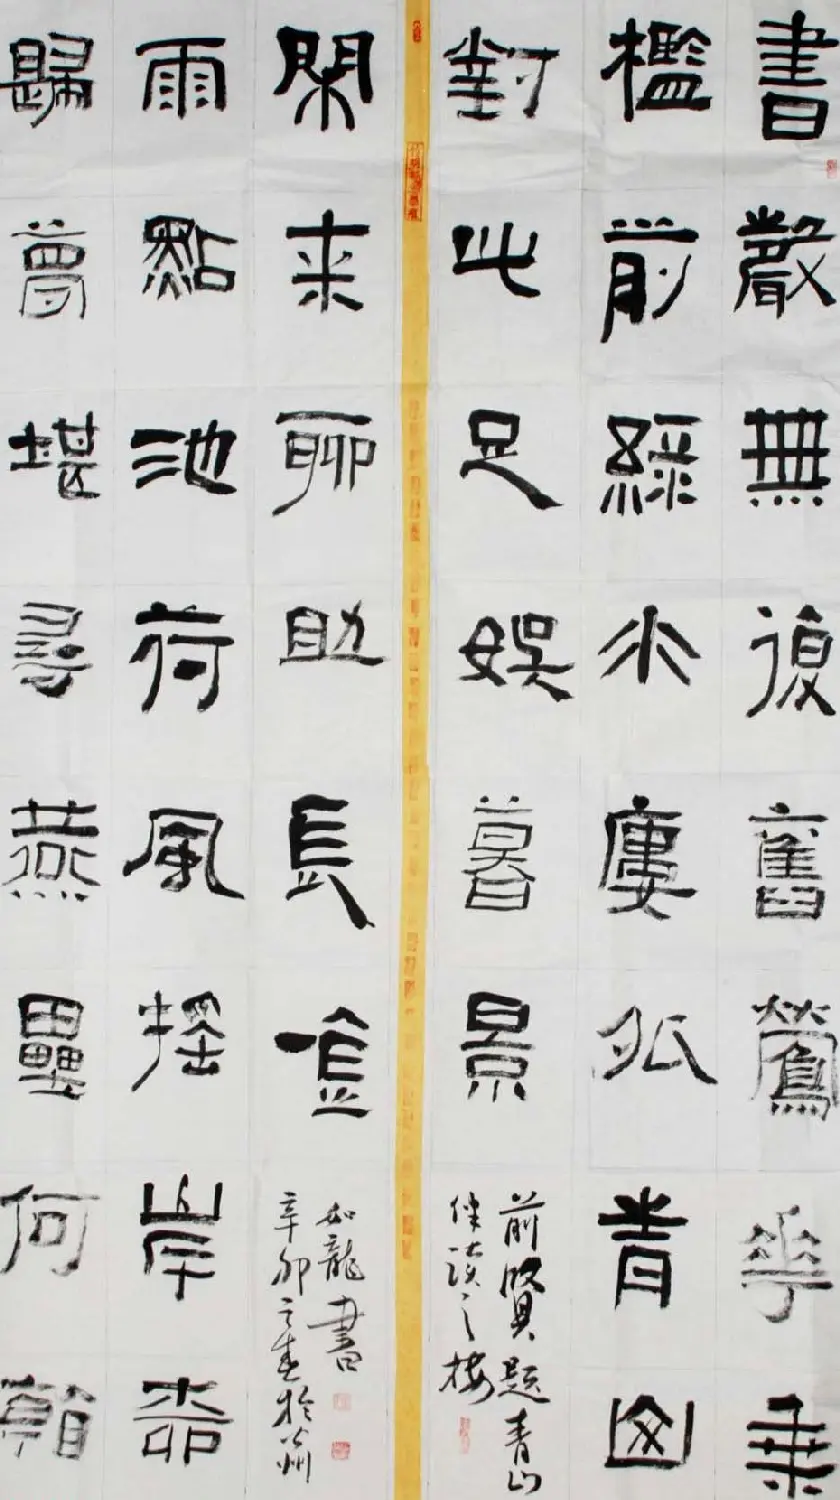 書嚴無復舊鶯華乘
檻前綠水廔外青山
對此足娛暮景
前賢題青山
伴讀之樓
歸夢堪尋燕壘何朝
雨點池荷風搖岸桺
閑來聊助長吟
如龍書
辛卯之春於州